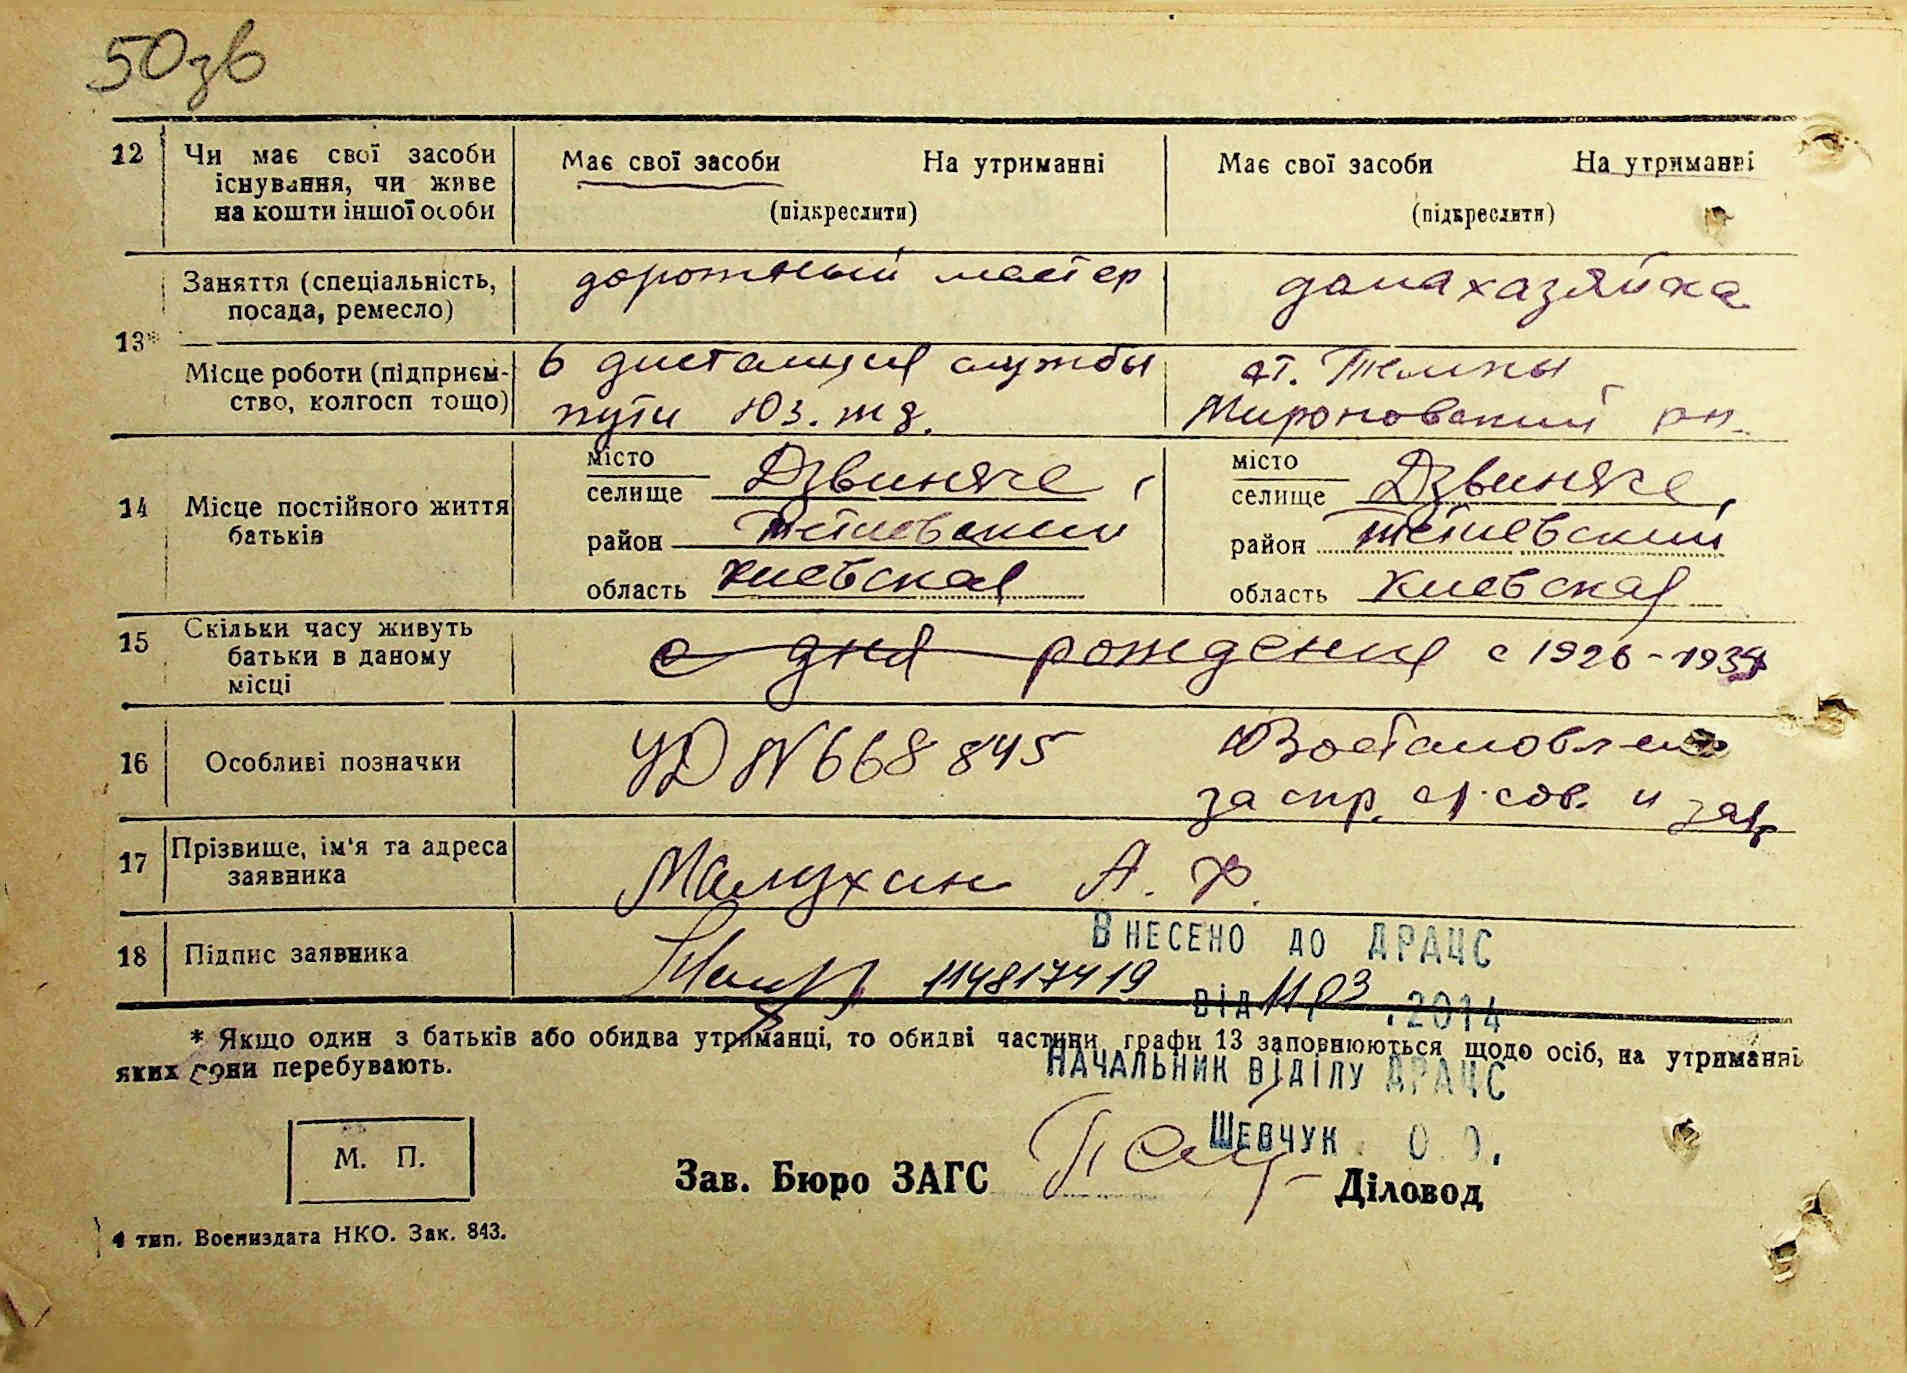 50зв
12 Чи має свої засоби існування, чи живе на кошти іншої особи
Має свої засоби На утриманні
(підкреслити)
Має свої засоби На утриманні
(підкреслити)
13*
Заняття (спеціальність, посада, ремесло)
дорожный мастер
домахазяйка
Місце роботи (підприєм-
ство, колгосп тощо)
6 дистанция службы
пути Юз. жд.
ст.
Мироновский рн.
14 Місце постійного життя батьків
місто
селище Дзвиняче,
район Тетиевский
область Киевская
місто
селище Дзвиняче,
район Тетиевский
область Киевская
15 Скільки часу живуть батьки в даному місці
с дня рождения с 1926-1934
16 Особливі позначки
УД N 668845
за спр. с/сов. и
17 Прізвище, ім'я та адреса заявника
Малухин А. Ф.
18 Підпис заявника
114817419
Внесено до ДРАЦС
від 11.03.2014
* Якщо один з батьків або обидва утриманці, то обидві частини графи 13 заповнюються щодо осіб, на утриманні
яких вони перебувають.
Начальник відділу ДРАЦС
Шевчук О.О.
М. П.
Зав. Бюро ЗАГС
Діловод
4 тип. Воениздата НКО. Зак. 843.